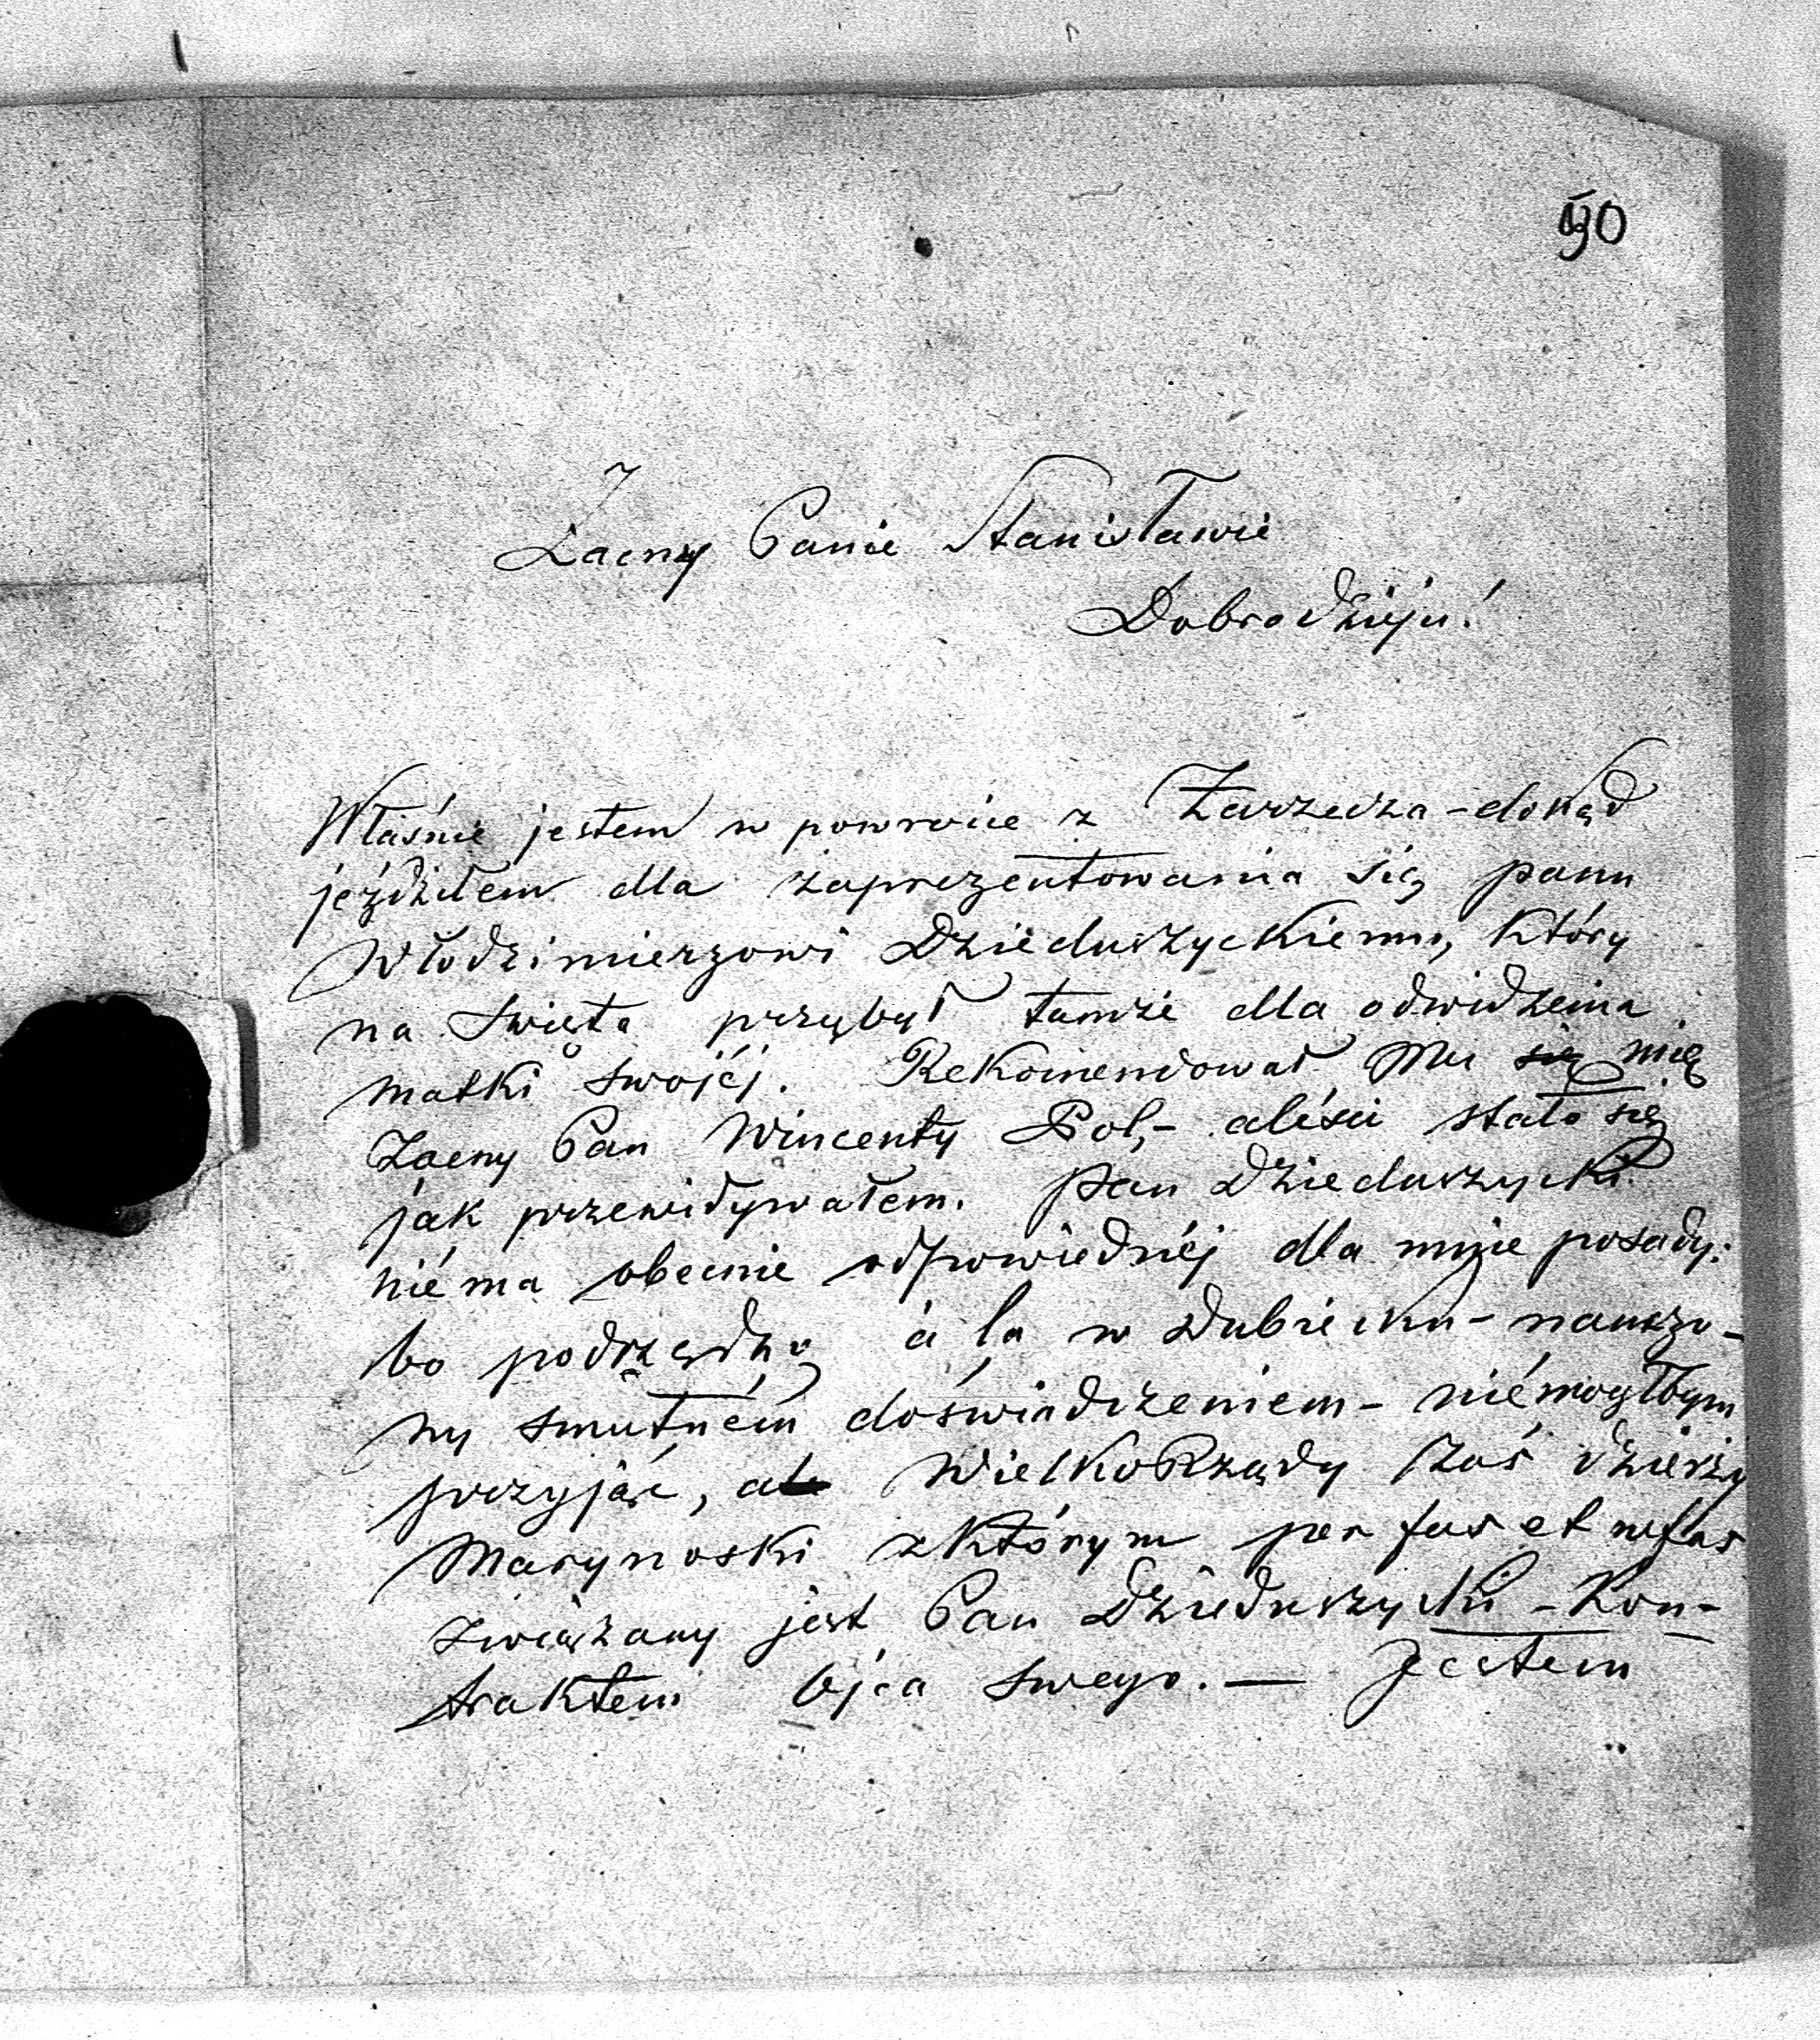 Zacny Panie Stanisławie
Dobrodzieju!
Właśnie jestem w powrocie z Zarzecza - dokąd
jeździłem dla zaprezentowania się panu
Włodzimierzowi Dzieduszyckiemu, który
na święta przybył tamże dla odwidzenia
matki swojéj. Rekomendował Mu się mię
Zacny Pan Wincenty Pol, - aliści stało się
jak przewidywałem. Pan Dzieduszycki
niéma obecnie odpowiednéj dla mnie posady:
bo podrzędną à la w Dubiecku - nauczo-
ny smutném doświadczeniem - niémógłbym
przyjąć, a WielkoRządy zaś dzierży
Marynoski zktórym per fas et nefas
związany jest Pan Dzieduszycki - Kon-
traktem Ojca swego. — Jestem